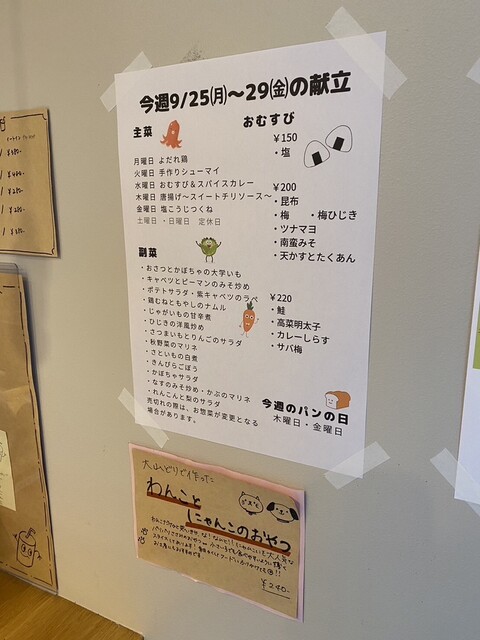 今週9/25㈪〜29㈮の献立
主菜
月曜日 よだれ鶏
火曜日 手作りシューマイ
水曜日 おむすび&スパイスカレー
木曜日 唐揚げ〜スイートチリソース〜
金曜日 塩こうじつくね
土曜日・日曜日 定休日
副菜
・おさつとかぼちゃの大学いも
・キャベツとピーマンのみそ炒め
・ポテトサラダ・紫キャベツのラペ
・鶏むねともやしのナムル
・じゃがいもの甘辛煮
・ひじきの洋風炒め
・さつまいもとりんごのサラダ
・秋野菜のマリネ
・さといもの白煮
・きんぴらごぼう
・かぼちゃサラダ
・なすのみそ炒め・かぶのマリネ
・れんこんと梨のサラダ
売切れの際は、お惣菜が変更となる
場合があります。
おむすび
¥150
・塩
¥200
・昆布
・梅 ・梅ひじき
・ツナマヨ
・南蛮みそ
・天かすとたくあん
¥220
・鮭
・高菜明太子
・カレーしらす
・サバ梅
今週のパンの日
木曜日・金曜日
大山どりで作った
わんこと
にゃんこのおやつ
¥240-